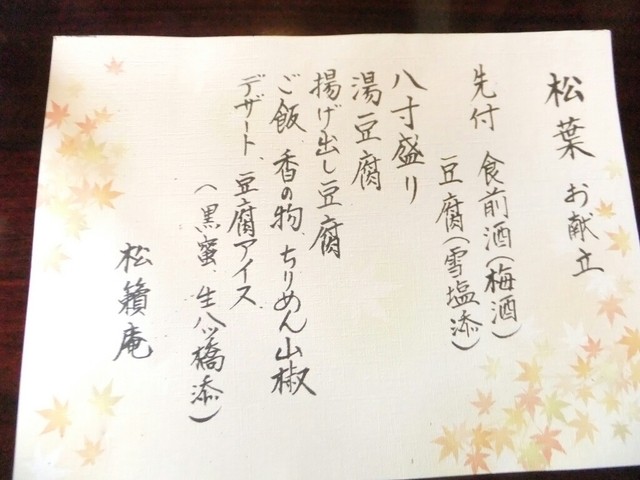 松葉 お献立
先付 食前酒(梅酒)
豆腐(雪塩添)
八寸盛り
湯豆腐
揚げ出し豆腐
ご飯 香の物、ちりめん山椒
デザート、豆腐アイス
(黒蜜、生八ツ橋添)
松籟庵